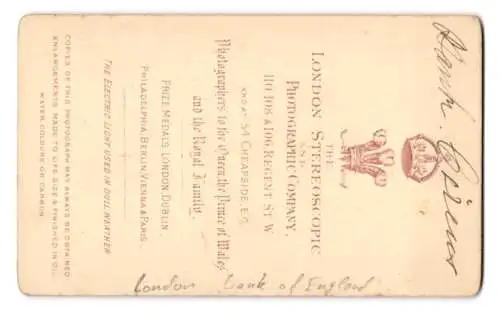 THE
LONDON STEREOSCOPIC
AND
PHOTOGRAPHIC COMPANY,
110, 108 & 106 REGENT ST W.
AND AT 54 CHEAPSIDE, E.C.
Photographers to the Queen the Prince of Wales
and the Royal Family.
PRIZE MEDALS, LONDON DUBLIN.
PHILADELPHIA, BERLIN, VIENNA & PARIS.
THE ELECTRIC LIGHT USED IN DULL WEATHER
COPIES OF THIS PHOTOGRAPH MAY ALWAYS BE OBTAINED
ENLARGEMENTS MADE TO LIFE SIZE & FINISHED IN OIL
WATER COLOUR OR CARBON
London Bank of England